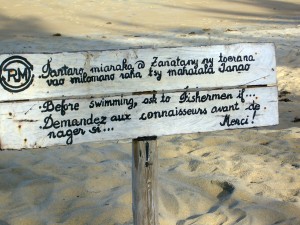 RM
Fantaro miaraka @ Zanatany ny toerana
vao milomano raha tsy mahalala Tanao
. Before swimming, ask to Fishermen if...
. Demandez aux connaisseurs avant de
nager si... Merci!